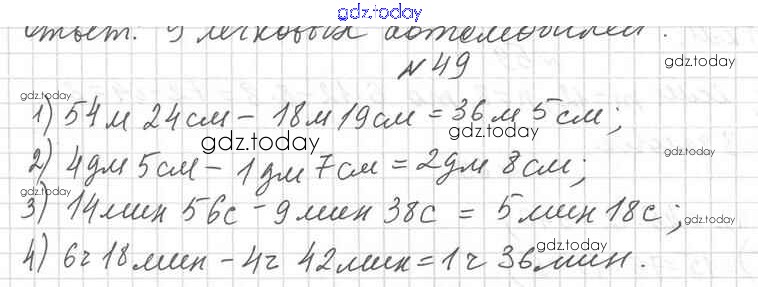 gdz.today
Ответ: 9 легковых автомобилей.
№49
gdz.today
gdz.today
1) 54м 24см - 18м 19см = 36м 5см;
gdz.today
gdz.today
2) 4дм 5см - 1дм 7см = 2дм 8см;
gdz.today
3) 14мин 56с - 9мин 38с = 5мин 18с;
gdz.today
gdz.today
4) 6ч 18мин - 4ч 42мин = 1ч 36мин.